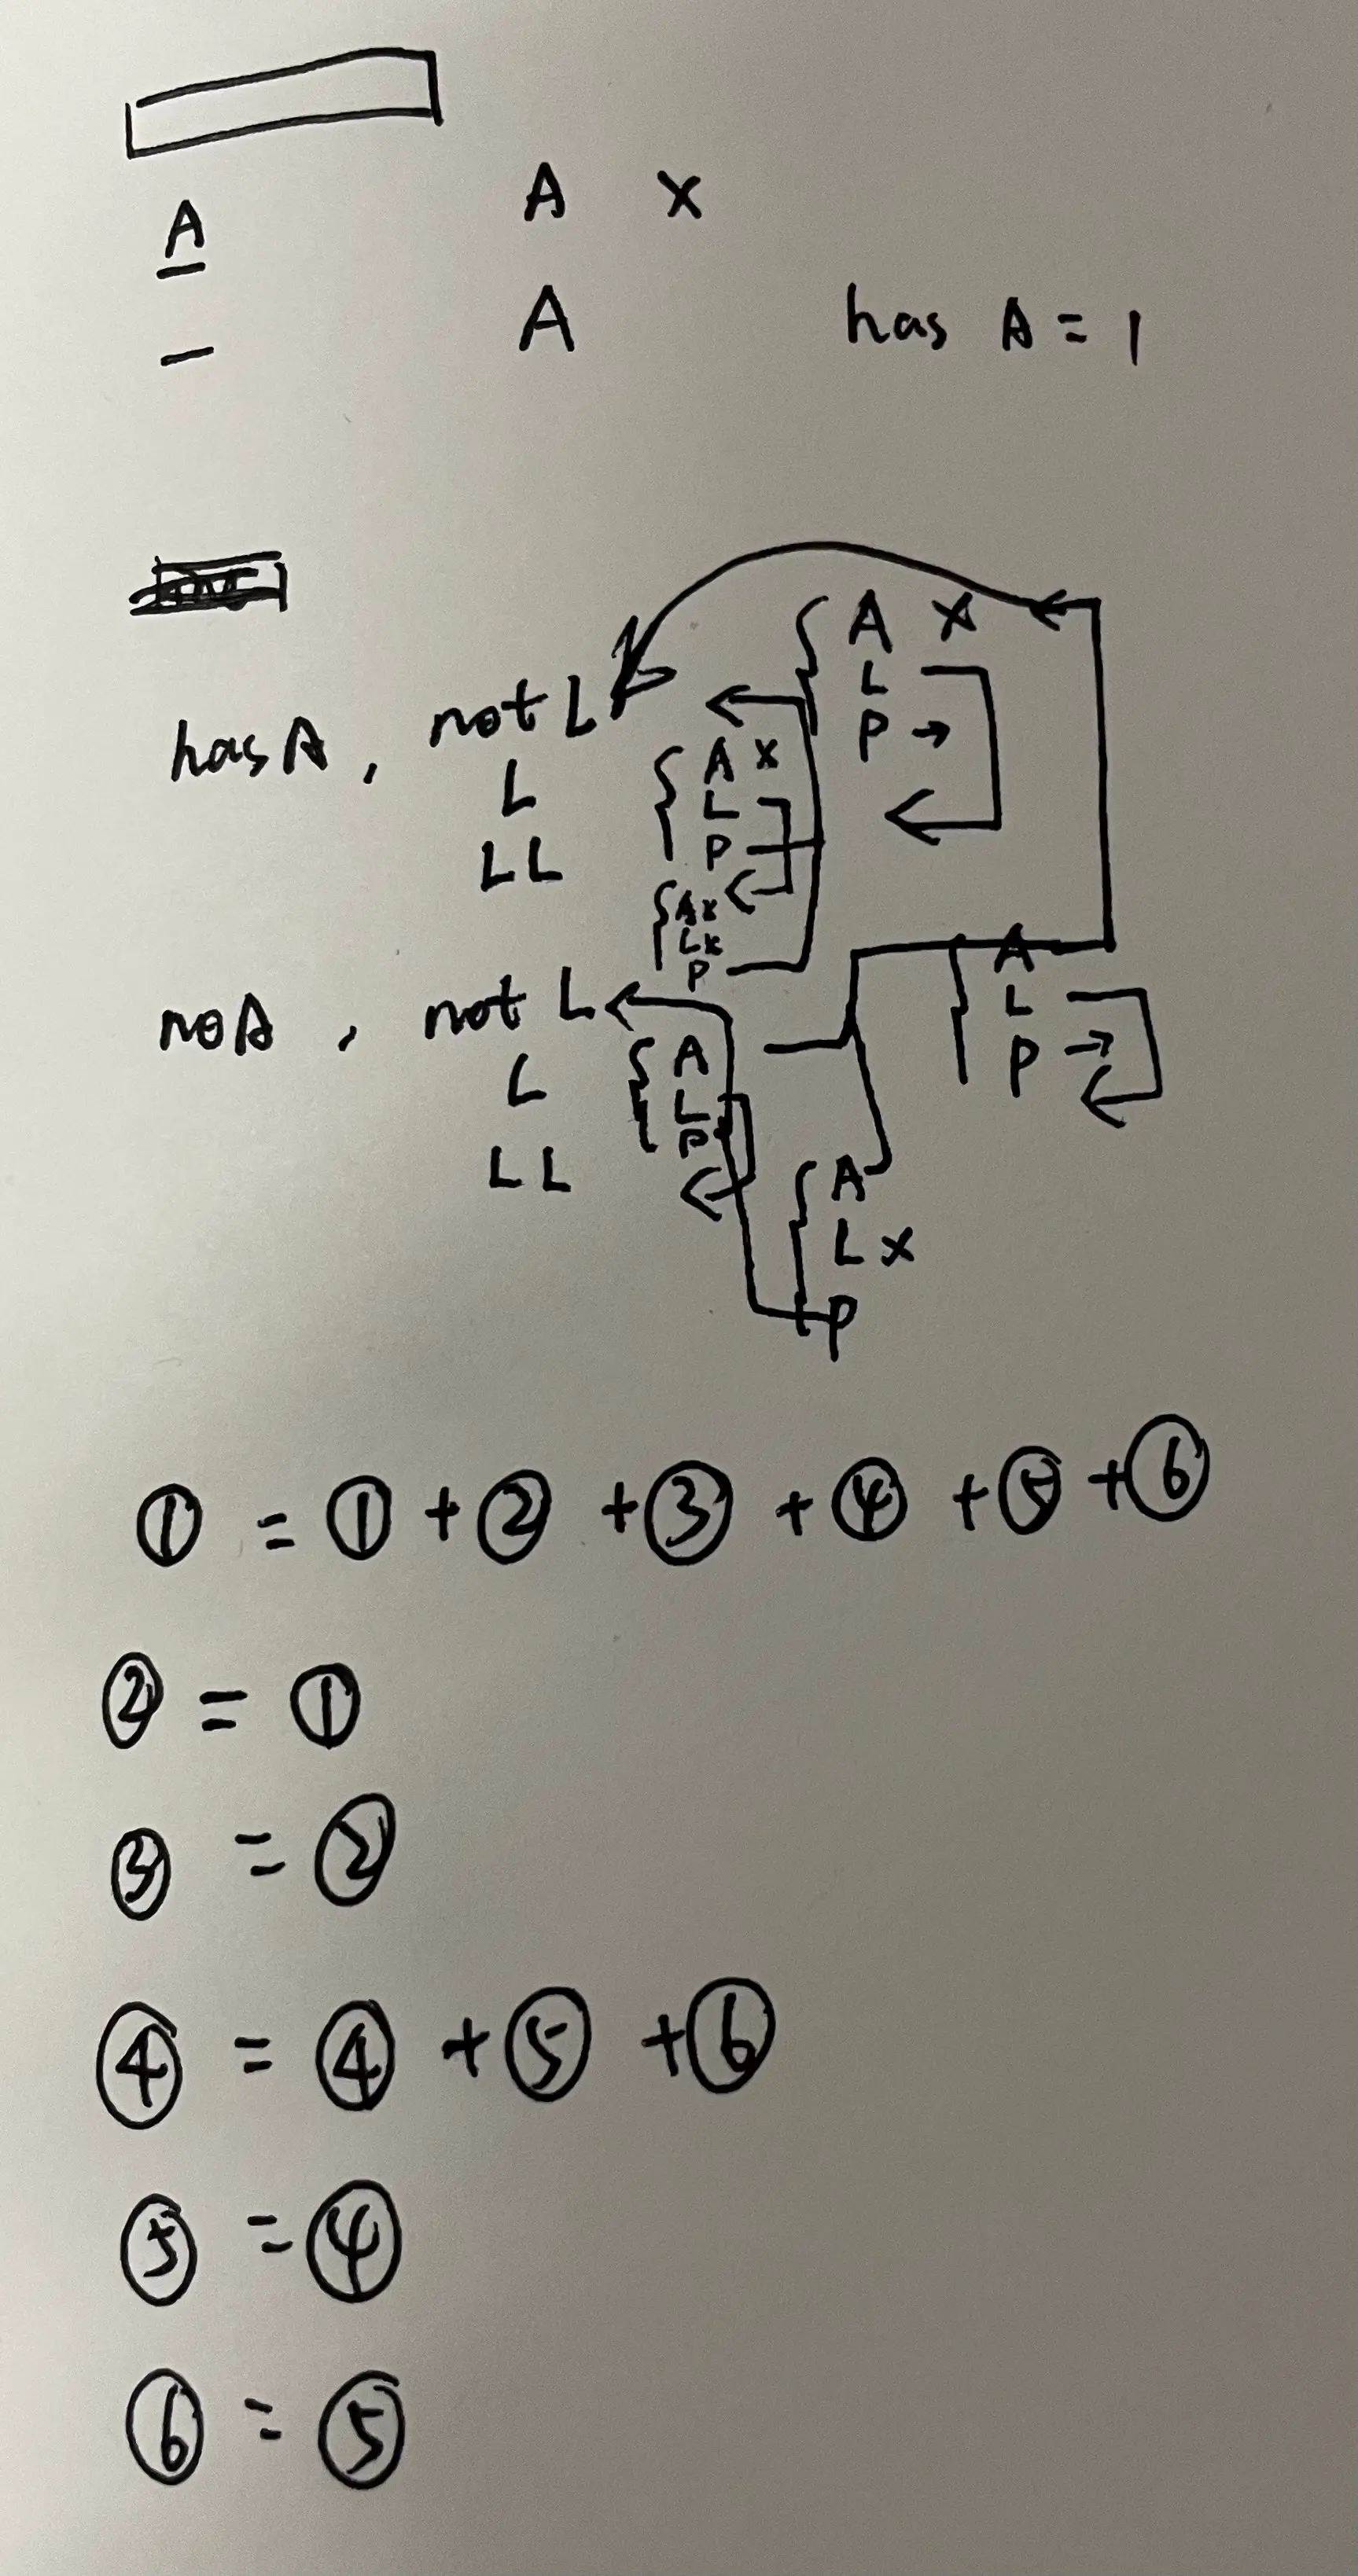 A X
A
A has A = 1
has A , not L
L
LL
A X
L
P →
A X
L
P
A X
L X
P
no A , not L
L
LL
A
L
P
A
L
P →
A
L X
P
① = ① + ② + ③ + ④ + ⑤ + ⑥
② = ①
③ = ②
④ = ④ + ⑤ + ⑥
⑤ = ④
⑥ = ⑤